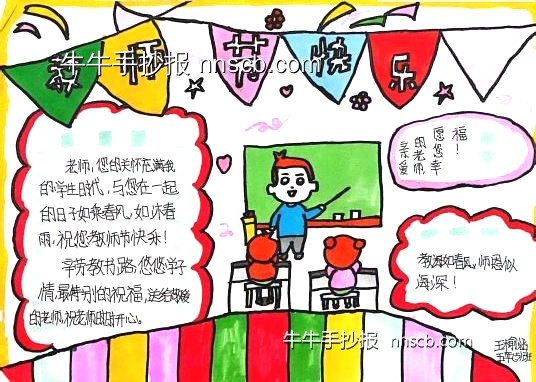 教师节快乐
牛牛手抄报 nnscb.com
老师,您的关怀充满我
的学生时代,与您在一起
的日子如乘春风,如沐春
雨,祝您教师节快乐!
辛劳教书路,悠悠学子
情,最特别的祝福,送给敬爱
的老师,祝老师的开心。
愿福
的您!
亲老
爱师幸
教诲如春风,师恩似
海深!
牛牛手抄报 nnscb.com